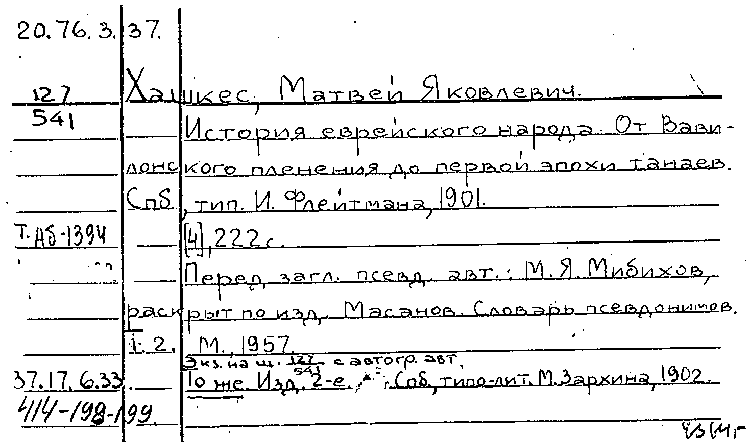 20.76.3.37.
127 Хашкес, Матвей Яковлевич.
541 История еврейского народа. От Вави-
лонского пленения до первой эпохи танаев.
Спб., тип. И. Флейтмана, 1901.
Т. АБ-1394 [4], 222 с.
Перед загл. псевд. авт.: М. Я. Мибихов,
раскрыт по изд. Масанов. Словарь псевдонимов.
т. 2. М., 1957.
Экз. на ш. 127/541 с автогр. авт.
37.17.6.33. То же. Изд. 2-е. Спб., типо-лит. М. Зархина, 1902.
414-198-199.